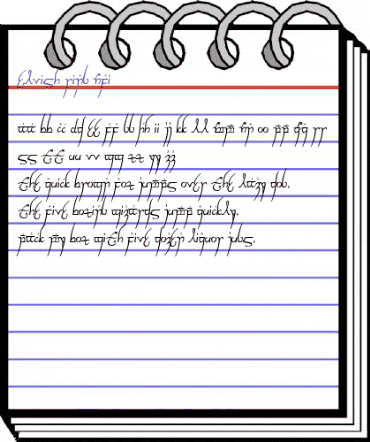 Elvish Ring NFI
Aa Bb Cc Dd Ee Ff Gg Hh Ii Jj Kk Ll Mm Nn Oo Pp Qq Rr
Ss Tt Uu Vv Ww Xx Yy Zz
The quick brown fox jumps over the lazy dog.
The five boxing wizards jump quickly.
Pack my box with five dozen liquor jugs.